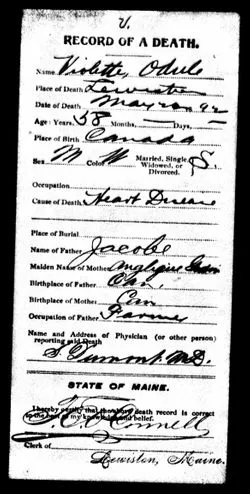 V.
RECORD OF A DEATH.
Name, Violette, Odule
Place of Death, Lewiston
Date of Death, May 20, 92
Age: Years, 58 Months, Days,
Place of Birth, Canada
Sex, M Color W Married, Single, Widowed, or Divorced. S
Occupation,
Cause of Death, Heart Disease
Place of Burial,
Name of Father, Jacobe
Maiden Name of Mother, Anglique
Birthplace of Father, Can.
Birthplace of Mother, Can
Occupation of Father, Farmer
Name and Address of Physician (or other person)
reporting said Death
Dumont M.D.
STATE OF MAINE.
I hereby certify that the above death record is correct
to the best of my knowledge and belief.
Clerk of
Lewiston, Maine.